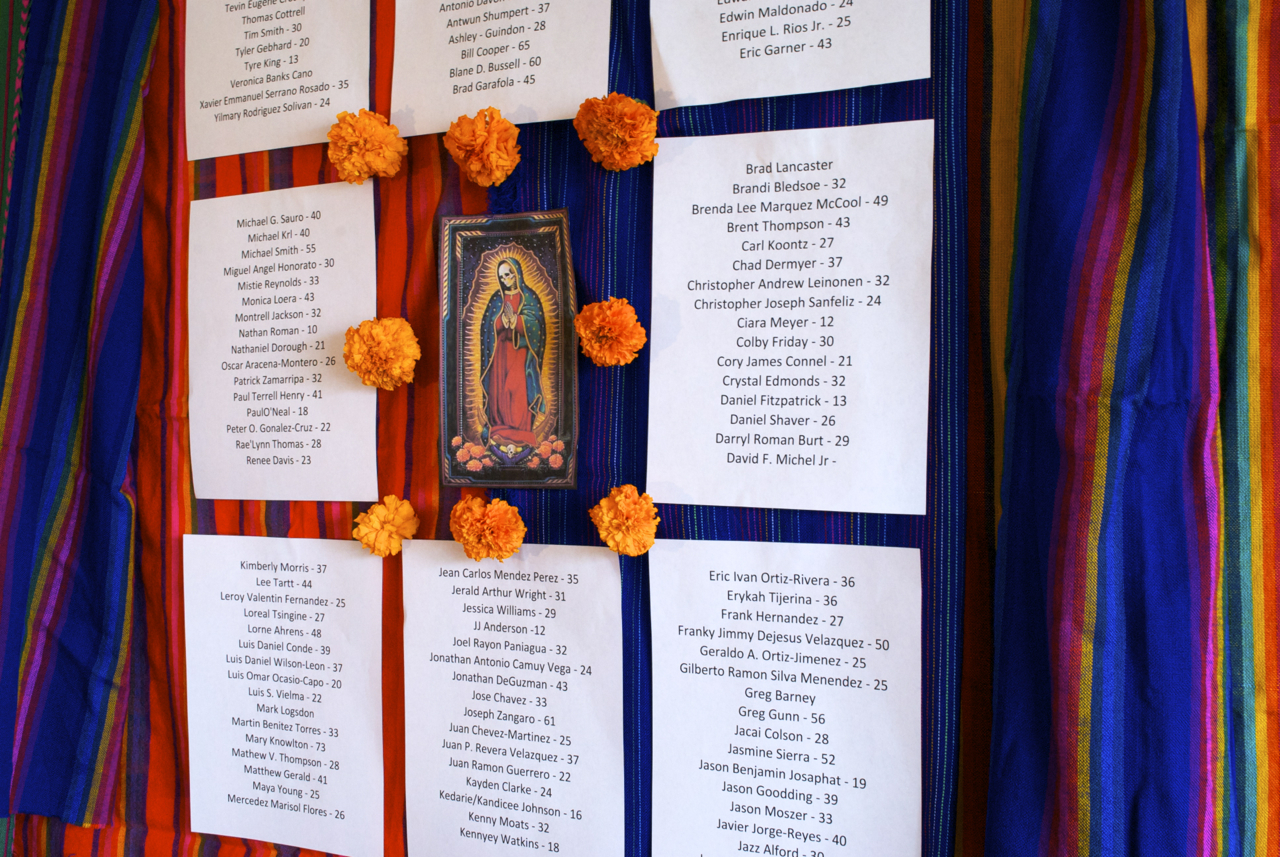 Tevin Eugene
Thomas Cottrell
Tim Smith - 30
Tyler Gebhard - 20
Tyre King - 13
Veronica Banks Cano
Xavier Emmanuel Serrano Rosado - 35
Yilmary Rodriguez Solivan - 24
Antonio
Antwun Shumpert - 37
Ashley - Guindon - 28
Bill Cooper - 65
Blane D. Bussell - 60
Brad Garafola - 45
Edwin Maldonado - 24
Enrique L. Rios Jr. - 25
Eric Garner - 43
Michael G. Sauro - 40
Michael Krl - 40
Michael Smith - 55
Miguel Angel Honorato - 30
Mistie Reynolds - 33
Monica Loera - 43
Montrell Jackson - 32
Nathan Roman - 10
Nathaniel Dorough - 21
Oscar Aracena-Montero - 26
Patrick Zamarripa - 32
Paul Terrell Henry - 41
PaulO'Neal - 18
Peter O. Gonalez-Cruz - 22
Rae'Lynn Thomas - 28
Renee Davis - 23
Brad Lancaster
Brandi Bledsoe - 32
Brenda Lee Marquez McCool - 49
Brent Thompson - 43
Carl Koontz - 27
Chad Dermyer - 37
Christopher Andrew Leinonen - 32
Christopher Joseph Sanfeliz - 24
Ciara Meyer - 12
Colby Friday - 30
Cory James Connel - 21
Crystal Edmonds - 32
Daniel Fitzpatrick - 13
Daniel Shaver - 26
Darryl Roman Burt - 29
David F. Michel Jr -
Kimberly Morris - 37
Lee Tartt - 44
Leroy Valentin Fernandez - 25
Loreal Tsingine - 27
Lorne Ahrens - 48
Luis Daniel Conde - 39
Luis Daniel Wilson-Leon - 37
Luis Omar Ocasio-Capo - 20
Luis S. Vielma - 22
Mark Logsdon
Martin Benitez Torres - 33
Mary Knowlton - 73
Mathew V. Thompson - 28
Matthew Gerald - 41
Maya Young - 25
Mercedez Marisol Flores - 26
Jean Carlos Mendez Perez - 35
Jerald Arthur Wright - 31
Jessica Williams - 29
JJ Anderson -12
Joel Rayon Paniagua - 32
Jonathan Antonio Camuy Vega - 24
Jonathan DeGuzman - 43
Jose Chavez - 33
Joseph Zangaro - 61
Juan Chevez-Martinez - 25
Juan P. Revera Velazquez - 37
Juan Ramon Guerrero - 22
Kayden Clarke - 24
Kedarie/Kandicee Johnson - 16
Kenny Moats - 32
Kennyey Watkins - 18
Eric Ivan Ortiz-Rivera - 36
Erykah Tijerina - 36
Frank Hernandez - 27
Franky Jimmy Dejesus Velazquez - 50
Geraldo A. Ortiz-Jimenez - 25
Gilberto Ramon Silva Menendez - 25
Greg Barney
Greg Gunn - 56
Jacai Colson - 28
Jasmine Sierra - 52
Jason Benjamin Josaphat - 19
Jason Goodding - 39
Jason Moszer - 33
Javier Jorge-Reyes - 40
Jazz Alford - 30